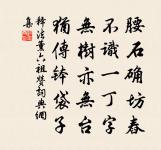 腰石碓坊舂
不識一丁字
無樹亦無台
猶傳缽袋子
釋法薰六祖贊詞典網
集